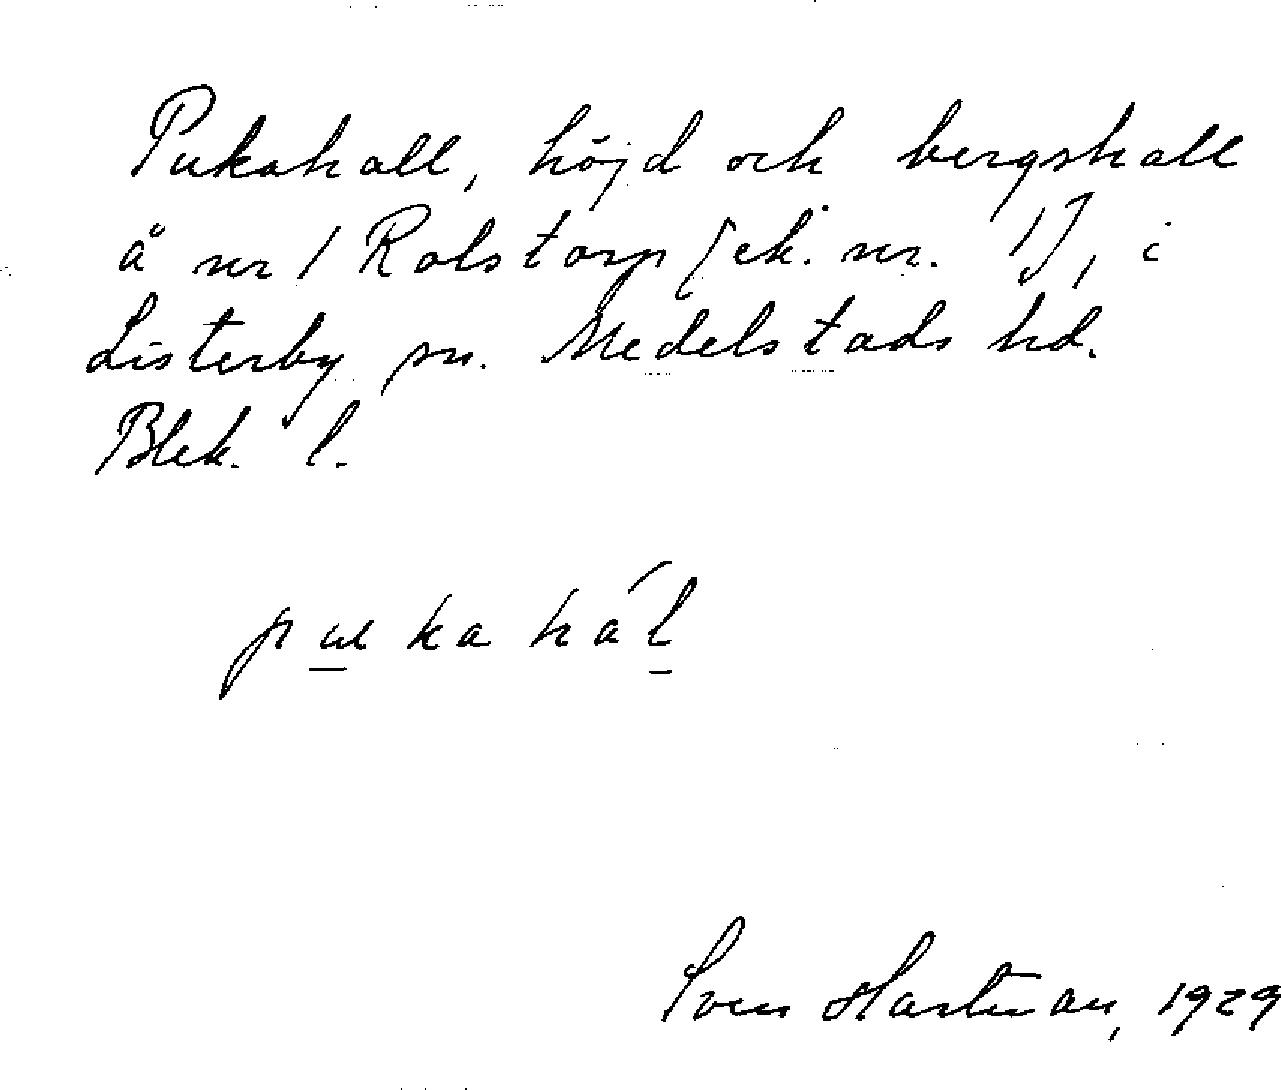 Pukahall, höjd och bergshall
å nr 1 Rolstorp [ek. nr. 1], i
Listerby sn. Medelstads hd.
Blek. l.
pukahál
Sven Hartman, 1929